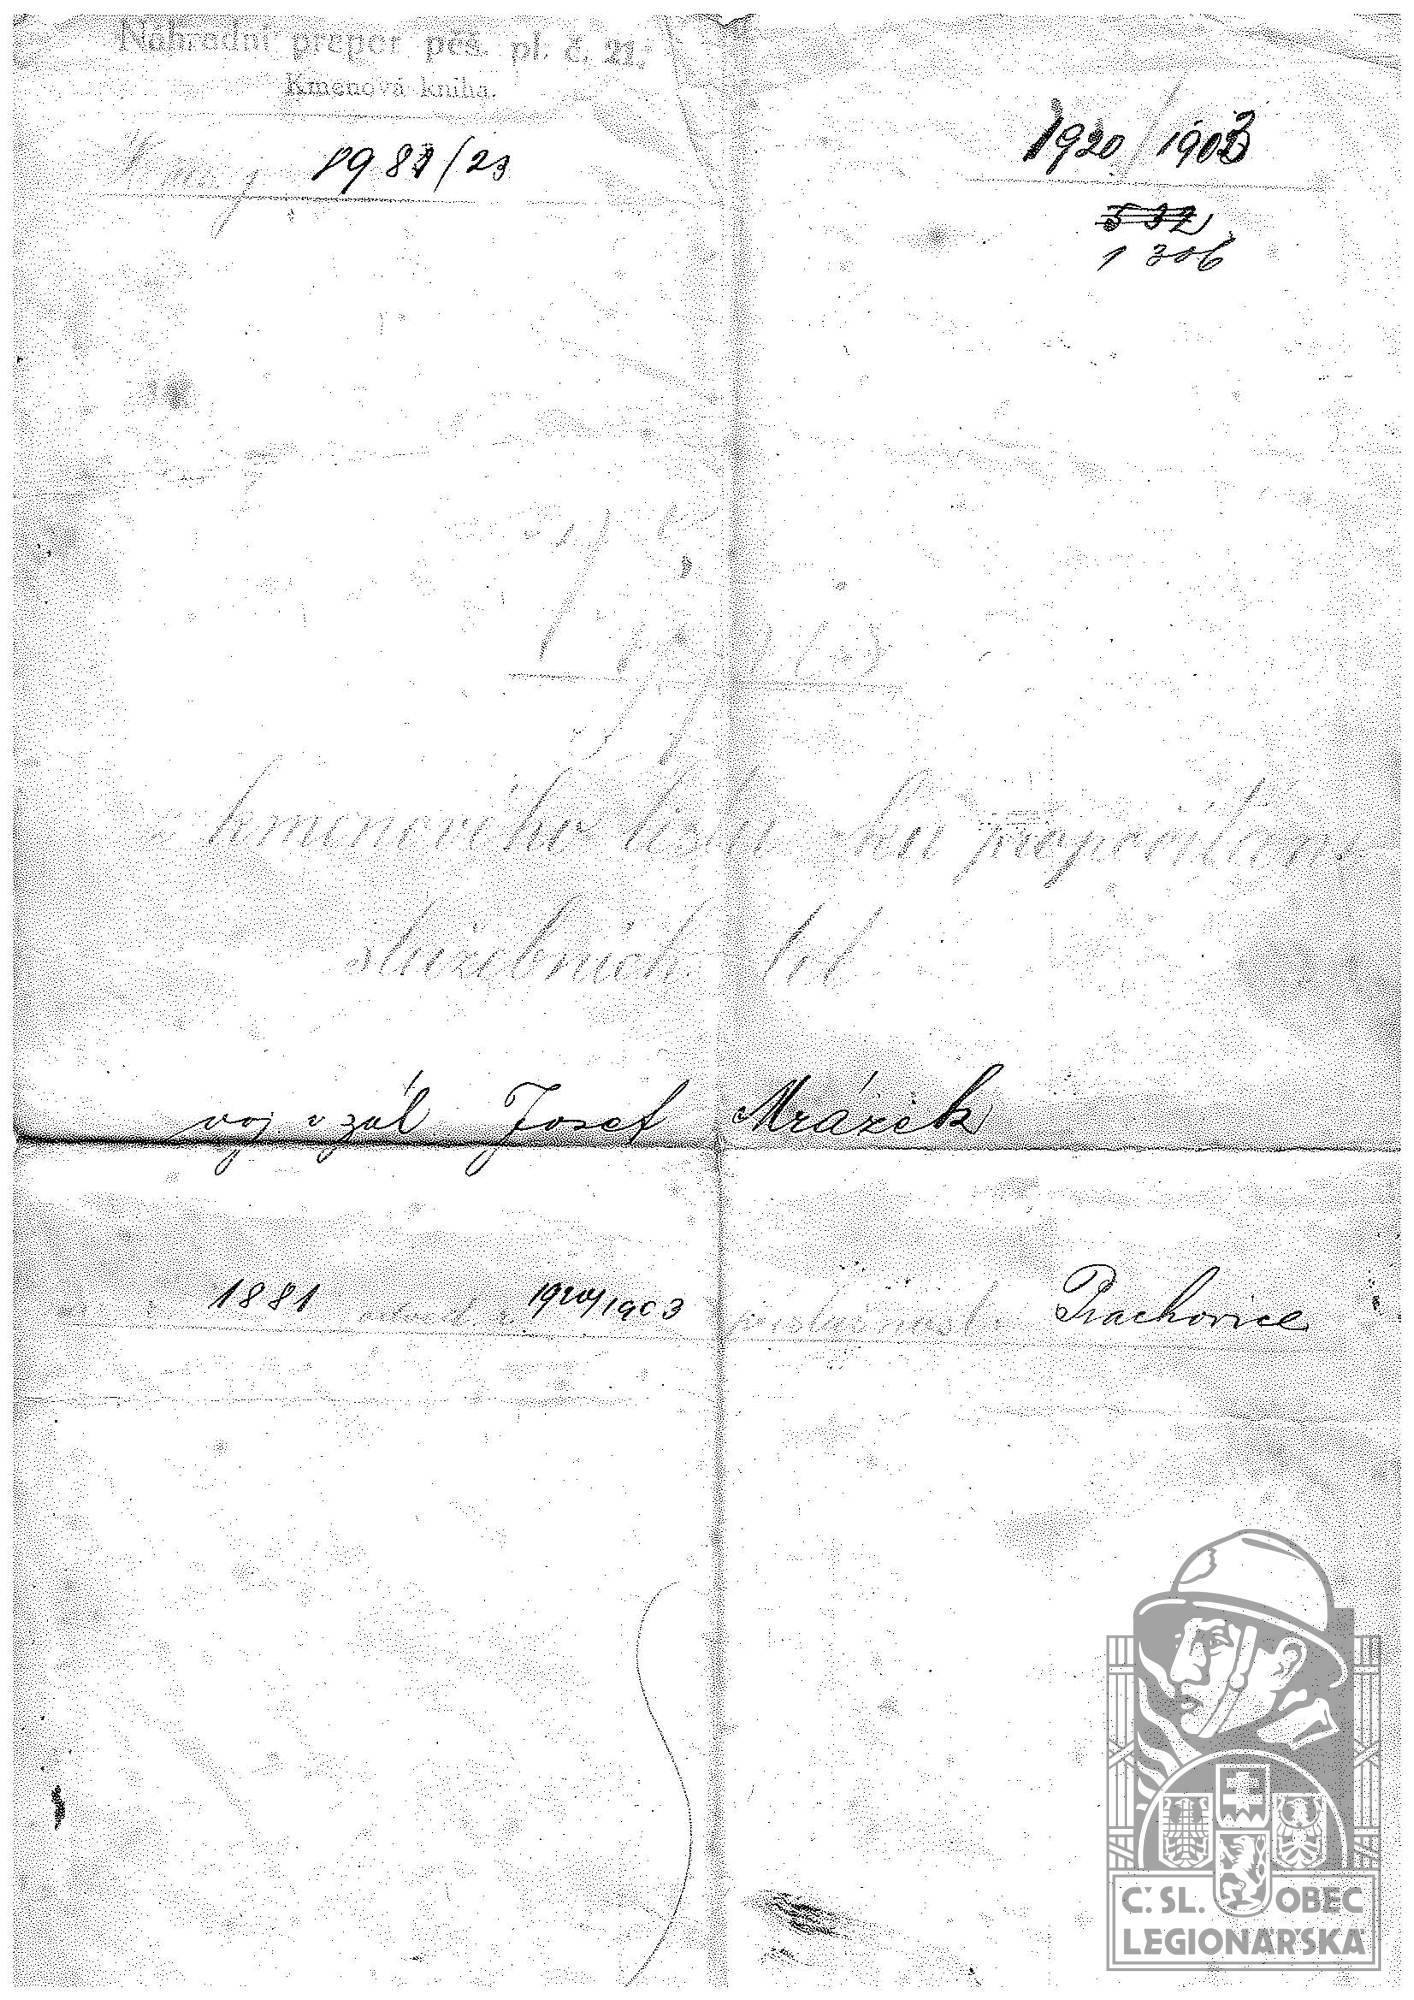 Náhradní prapor pěš. pl. č. 21.
Kmenová kniha.
Kmen. j
1920/1903
532
1306
Výpis
z kmenového listu ku propočítání
služebních let
voj v zál Josef Mrázek
1881 odvod. r. 1920/1903 příslušnost: Prachovice
Č. SL. OBEC
LEGIONÁŘSKÁ